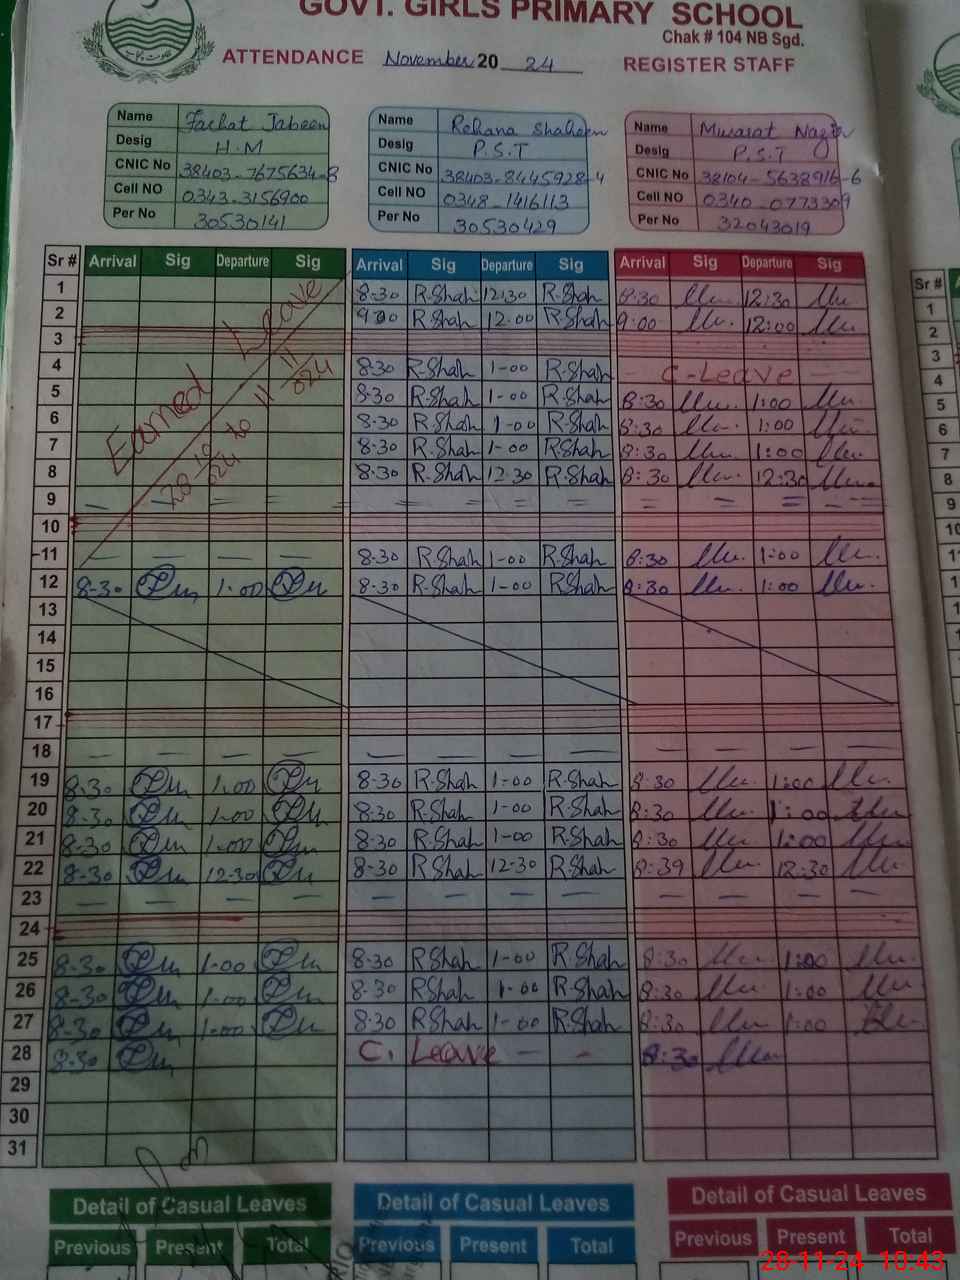 GOVT. GIRLS PRIMARY SCHOOL
Chak # 104 NB Sgd.
ATTENDANCE November 20 24 REGISTER STAFF
Name Farhat Jabeen
Desig H.M
CNIC No 38403-7675634-8
Cell NO 0343-3156900
Per No 30530141
Name Rehana Shaheen
Desig P.S.T
CNIC No 38403-8445928-4
Cell NO 0348-1416113
Per No 30530429
Name Musarat Nazir
Desig P.S.T
CNIC No 38104-5638916-6
Cell NO 0340-0773309
Per No 32043019
Sr # Arrival Sig Departure Sig Arrival Sig Departure Sig Arrival Sig Departure Sig Sr #
1 8:30 R.Shah 12:30 R.Shah 8:30 12:30 1
2 9:00 R.Shah 12:00 R.Shah 9:00 12:00 2
3 3
4 8:30 R.Shah 1-00 R.Shah C-Leave 4
5 8:30 R.Shah 1-00 R.Shah 8:30 1:00 5
6 8:30 R.Shah 1-00 R.Shah 8:30 1:00 6
7 8:30 R.Shah 1-00 R.Shah 8:30 1:00 7
8 8:30 R.Shah 12:30 R.Shah 8:30 12:30 8
Earned Leave
9 9
10 10
11 8:30 R.Shah 1-00 R.Shah 8:30 1:00 11
12 8-30 1:00 8:30 R.Shah 1-00 R.Shah 8:30 1:00 12
13
14
15
16
17
18
19 8-30 1:00 8:30 R.Shah 1-00 R.Shah 8:30 1:00
20 8-30 1-00 8:30 R.Shah 1-00 R.Shah 8:30 1:00
21 8-30 1-00 8:30 R.Shah 1-00 R.Shah 8:30 1:00
22 8-30 12:30 8-30 R.Shah 12-30 R.Shah 8:39 12:30
23
24
25 8-30 1-00 8:30 R.Shah 1-00 R.Shah 8:30 1:00
26 8-30 1-00 8:30 R.Shah 1-00 R.Shah 8:30 1:00
27 8-30 1-00 8:30 R.Shah 1-00 R.Shah 8:30 1:00
28 8-30 C. Leave 8:30
29
30
31
Detail of Casual Leaves Detail of Casual Leaves Detail of Casual Leaves
Previous Present Total Previous Present Total Previous Present Total
28-11-24 10:43